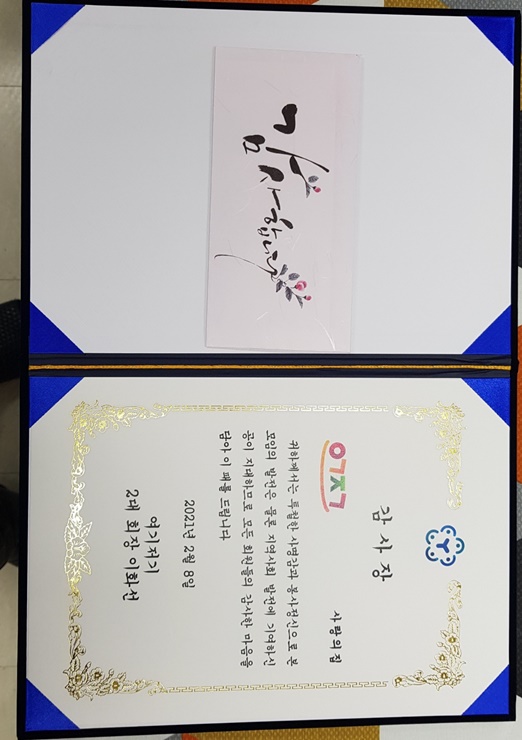 감사합니다
감 사 장
사랑의집
여기저기
귀하께서는 투철한 사명감과 봉사정신으로 본
모임의 발전은 물론 지역사회 발전에 기여하신
공이 지대하므로 모든 회원들의 감사한 마음을
담아 이 패를 드립니다
2021년 2월 8일
여기저기
2대 회장 이화선